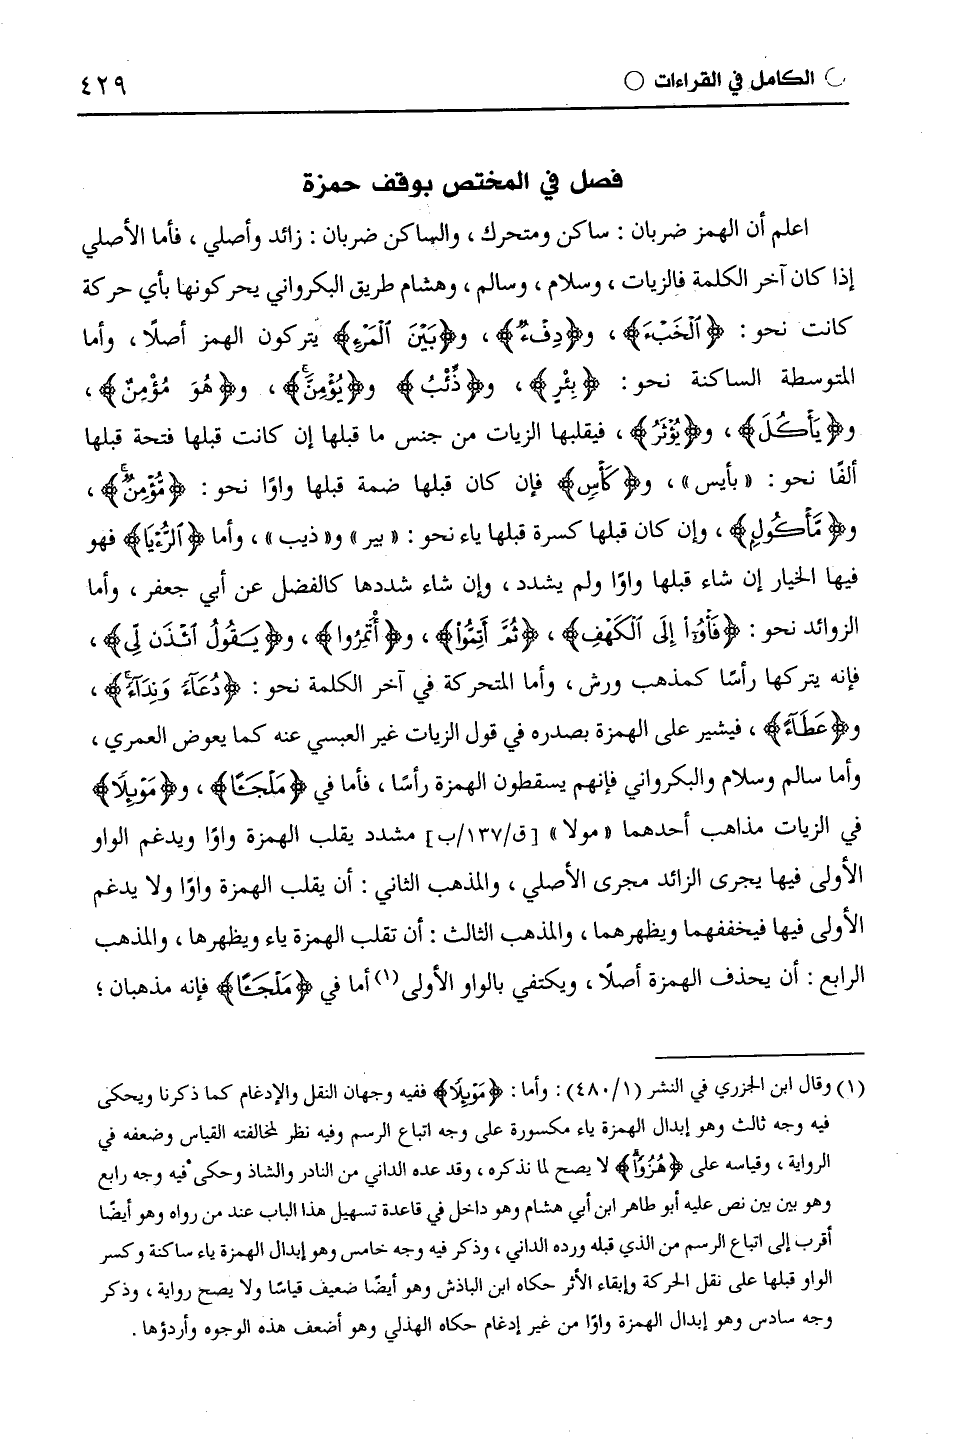 الكامل في القراءات ○ ٤٢٩
فصل في المختص بوقف حمزة
اعلم أن الهمز ضربان : ساكن ومتحرك ، والساكن ضربان : زائد وأصلي ، فأما الأصلي
إذا كان آخر الكلمة فالزيات ، وسلام ، وسالم ، وهشام طريق البكرواني يحركونها بأي حركة
كانت نحو : ﴿ ٱلْخَبْءَ ﴾ ، و﴿دِفْءٌ﴾ ، و﴿بَيْنَ ٱلْمَرْءِ﴾ يتركون الهمز أصلًا ، وأما
المتوسطة الساكنة نحو : ﴿ بِئْرٍ ﴾ ، و﴿ ذِّئْبُ ﴾ و﴿يُؤْمِنَّ﴾ ، و﴿هُوَ مُؤْمِنٌ﴾ ،
و﴿ يَأْكُلَ﴾ ، و﴿يُؤْثَرُ﴾ ، فيقلبها الزيات من جنس ما قبلها إن كانت قبلها فتحة قبلها
ألفًا نحو : «بأيس» ، و﴿ كَأْسٍ﴾ فإن كان قبلها ضمة قبلها واوًا نحو : ﴿ مُّؤْمِنٌ﴾ ،
و﴿ مَّأْكُولٍ﴾ ، وإن كان قبلها كسرة قبلها ياء نحو : « بير » و« ذيب » ، وأما ﴿ ٱلرُّءْيَا﴾ فهو
فيها الخيار إن شاء قبلها واوًا ولم يشدد ، وإن شاء شددها كالفضل عن أبي جعفر ، وأما
الزوائد نحو : ﴿ فَأْوُۥٓا إِلَى ٱلْكَهْفِ﴾ ، ﴿ ثُمَّ أَتِمُّوا۟﴾ ، و﴿أْتَمِرُوا﴾ ، و﴿يَقُولُ ٱئْذَن لِّي﴾ ،
فإنه يتركها رأسًا كمذهب ورش ، وأما المتحركة في آخر الكلمة نحو : ﴿ دُعَآءً وَنِدَآءً﴾ ،
و﴿عَطَآءً﴾ ، فيشير على الهمزة بصدره في قول الزيات غير العبسي عنه كما يعوض العمري ،
وأما سالم وسلام والبكرواني فإنهم يسقطون الهمزة رأسًا ، فأما في ﴿مَلْجَـًٔا﴾ ، و﴿مَوْئِلًا﴾
في الزيات مذاهب أحدهما « مولا » [ق/١٣٧/ب] مشدد يقلب الهمزة واوًا ويدغم الواو
الأولى فيها يجرى الزائد مجرى الأصلي ، والمذهب الثاني : أن يقلب الهمزة واوًا ولا يدغم
الأولى فيها فيخففهما ويظهرهما ، والمذهب الثالث : أن تقلب الهمزة ياء ويظهرها ، والمذهب
الرابع : أن يحذف الهمزة أصلًا ، ويكتفي بالواو الأولى (١) أما في ﴿مَلْجَـًٔا﴾ فإنه مذهبان ؛
(١) وقال ابن الجزري في النشر (٤٨٠/١) : وأما : ﴿مَوْئِلًا﴾ ففيه وجهان النقل والإدغام كما ذكرنا ويحكى
فيه وجه ثالث وهو إبدال الهمزة ياء مكسورة على وجه اتباع الرسم وفيه نظر لمخالفته القياس وضعفه في
الرواية ، وقياسه على ﴿هُزُوًا﴾ لا يصح لما نذكره ، وقد عده الداني من النادر والشاذ وحكى فيه وجه رابع
وهو بين بين نص عليه أبو طاهر ابن أبي هشام وهو داخل في قاعدة تسهيل هذا الباب عند من رواه وهو أيضًا
أقرب إلى اتباع الرسم من الذي قبله ورده الداني ، وذكر فيه وجه خامس وهو إبدال الهمزة ياء ساكنة وكسر
الواو قبلها على نقل الحركة وإبقاء الأثر حكاه ابن الباذش وهو أيضًا ضعيف قياسًا ولا يصح رواية ، وذكر
وجه سادس وهو إبدال الهمزة واوًا من غير إدغام حكاه الهذلي وهو أضعف هذه الوجوه وأردؤها .